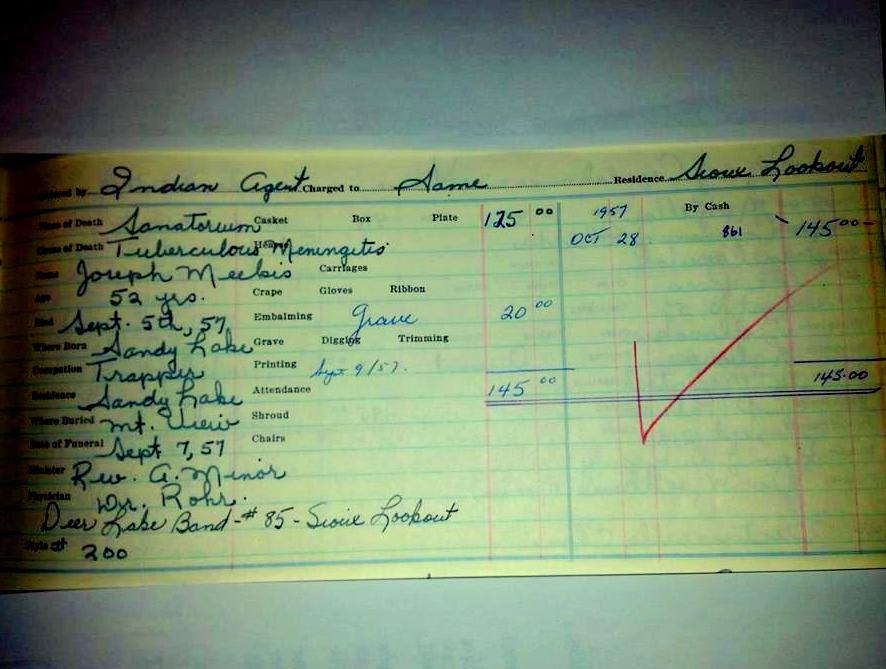 Indian Agent Charged to Same Residence Sioux Lookout
Place of Death Sanatorium Casket Box Plate 125 00 1957 By Cash
Cause of Death Tuberculous Meningitis Hearse OCT 28 861 145 00
Name Joseph Meekis Carriages
Age 52 yrs. Crape Gloves Ribbon
Died Sept. 5th, 57 Embalming grave 20 00
Where Born Sandy Lake Grave Digging Trimming
Occupation Trapper Printing Sept 9/57.
Residence Sandy Lake Attendance 145 00 145.00
Where Buried Mt. View Shroud
Date of Funeral Sept 7, 57 Chairs
Minister Rev. A. Minor
Physician Dr. Rohr.
Deer Lake Band - # 85 - Sioux Lookout
Style of 200